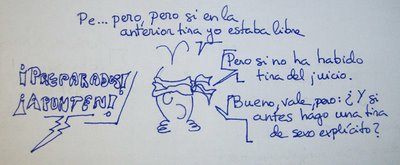 Pe... pero, pero si en la
anterior tira yo estaba libre
¡PREPARADOS!
¡APUNTEN!
Pero si no ha habido
tira del juicio.
Bueno, vale, pero: ¿Y si
antes hago una tira
de sexo explícito?